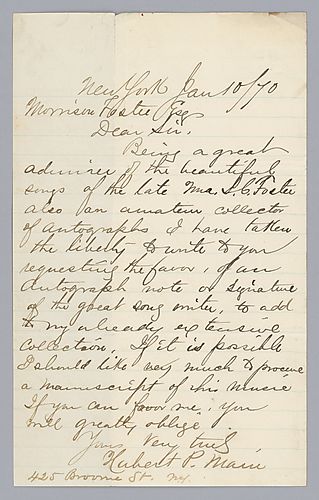 New York Jan 10/70
Morrison Foster Esq
Dear Sir,
Being a great
admirer of the beautiful
songs of the late Mr. S. C. Foster
also an amateur collector
of Autographs I have taken
the liberty to write to you
requesting the favor, of an
Autograph note or signature
of the great song writer, to add
to my already extensive
collection, If it is possible
I should like very much to procure
a manuscript of his music
If you can favor me, you
will greatly oblige
Yours Very truly
Hubert P. Main
425 Broome St. NY.